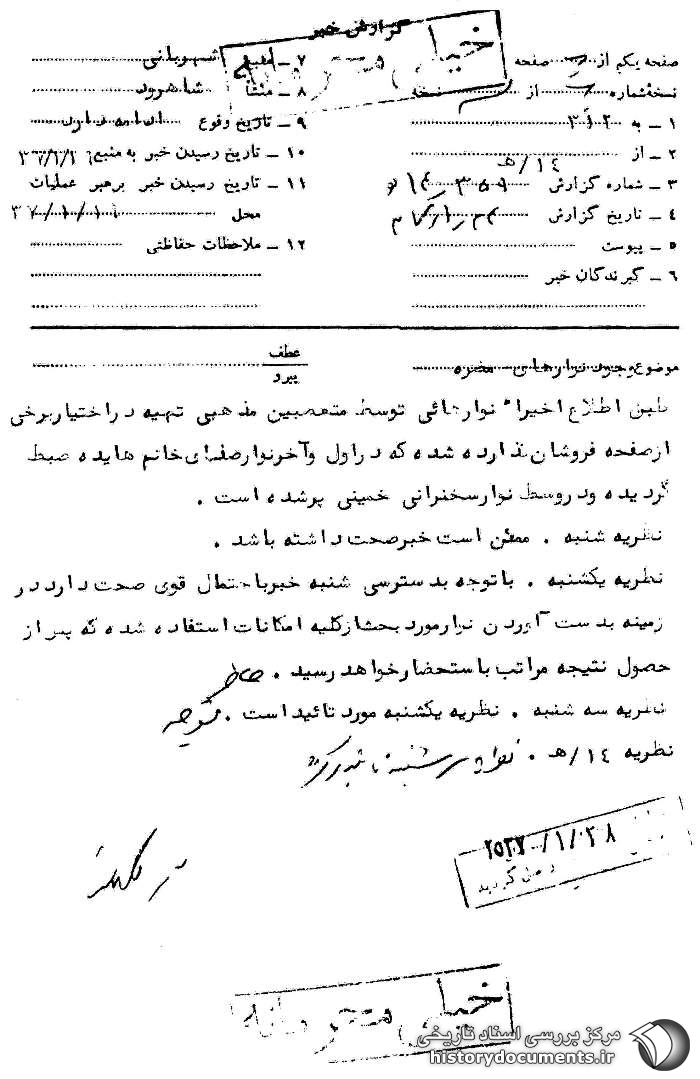 گزارش خبر
خیلی محرمانه
صفحه یکم از صفحه
نسخهٔ شماره از نسخه
۱ ـ به ۳۱۲
۲ ـ از ۱۴/هـ
۳ ـ شماره گزارش
۴ ـ تاریخ گزارش
۵ ـ پیوست
۶ ـ گیرندگان خبر
۷ ـ منبع شهربانی
۸ ـ منشأ شاهرود
۹ ـ تاریخ وقوع ادامه دارد
۱۰ ـ تاریخ رسیدن خبر به منبع
۱۱ ـ تاریخ رسیدن خبر برهبر عملیات
محل
۱۲ ـ ملاحظات حفاظتی
موضوع وجود نوارهای مضره
عطف
پیرو
طبق اطلاع اخیراً نوارهائی توسط متعصبین مذهبی تهیه در اختیار برخی
از صفحه فروشان گذارده شده که در اول و آخر نوار صدای خانم هایده ضبط
گردیده و در وسط نوار سخنرانی خمینی پر شده است .
نظریه شنبه . ممکن است خبر صحت داشته باشد .
نظریه یکشنبه . با توجه بدسترسی شنبه خبر با حتمال قوی صحت دارد در
زمینه بدست آوردن نوار مورد بحث از کلیه امکانات استفاده شده که پس از
حصول نتیجه مراتب باستحضار خواهد رسید .
نظریه سه شنبه . نظریه یکشنبه مورد تائید است .
نظریه ۱۴/هـ .
۲۵۳۷/۱/۲۸
خیلی محرمانه
مرکز بررسی اسناد تاریخی
historydocuments.ir